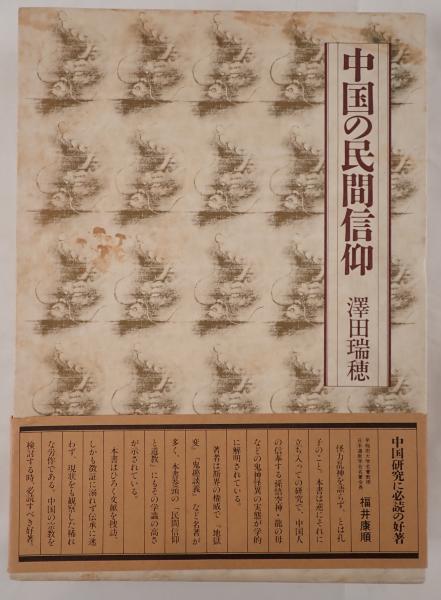 中国の民間信仰
澤田瑞穂
中国研究に必読の好著
早稲田大学名誉教授
日本道教学会名誉会長
福井康順
怪力乱神を語らず、とは孔
子のこと。本書は逆にそれに
立ち入っての研究で、中国人
の信奉する孫悟空神・龍の母
などの鬼神怪異の実態が学的
に解明されている。
著者は斯界の権威で『地獄
変』『鬼趣談義』など名著が
多く、本書巻頭の「民間信仰
と道教」にもその学識の高さ
が示されている。
本書はひろく文献を捜訪、
しかも徴証に溺れず伝承に迷
わず、現状をも観察した稀れ
な労作である。中国の宗教を
検討する時、必読すべき好著。